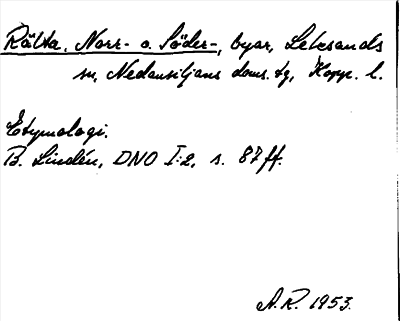 Rälta, Norr- o. Söder-, byar, Leksands
sn, Nedansiljans doms. tg, Kopp. l.
Etymologi.
B. Lindén, DNO I:2, s. 87 ff.
A.R. 1953.